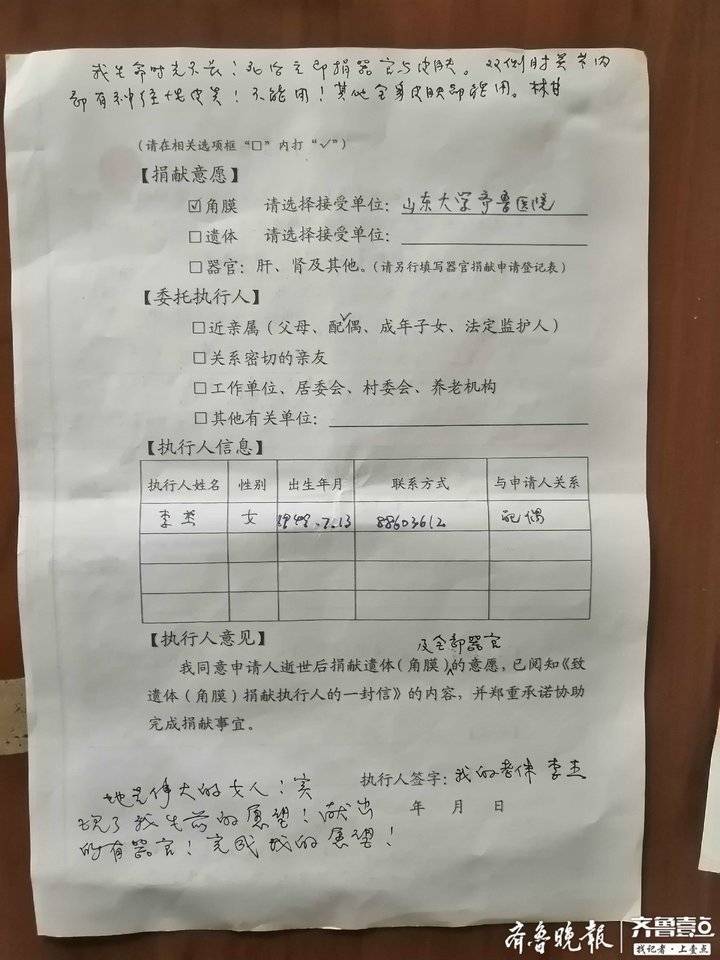 我生命时光不长！死后立即捐器官与皮肤。双侧肘关节内
都有神经性皮炎！不能用！其他全身皮肤都能用。林甘
（请在相关选项框“□”内打“√”）
【捐献意愿】
☑角膜 请选择接受单位：山东大学齐鲁医院
□遗体 请选择接受单位：
□器官：肝、肾及其他。（请另行填写器官捐献申请登记表）
【委托执行人】
□近亲属（父母、配偶、成年子女、法定监护人）
□关系密切的亲友
□工作单位、居委会、村委会、养老机构
□其他有关单位：
【执行人信息】
执行人姓名 性别 出生年月 联系方式 与申请人关系
李杰 女 1948.7.13 88603612 配偶
【执行人意见】
及全部器官
我同意申请人逝世后捐献遗体（角膜）的意愿，已阅知《致
遗体（角膜）捐献执行人的一封信》的内容，并郑重承诺协助
完成捐献事宜。
执行人签字：我的老伴 李杰
年 月 日
她是伟大的女人！实
现了我生前的愿望！献出
所有器官！完成我的愿望！
齐鲁晚报 齐鲁壹点
找记者·上壹点